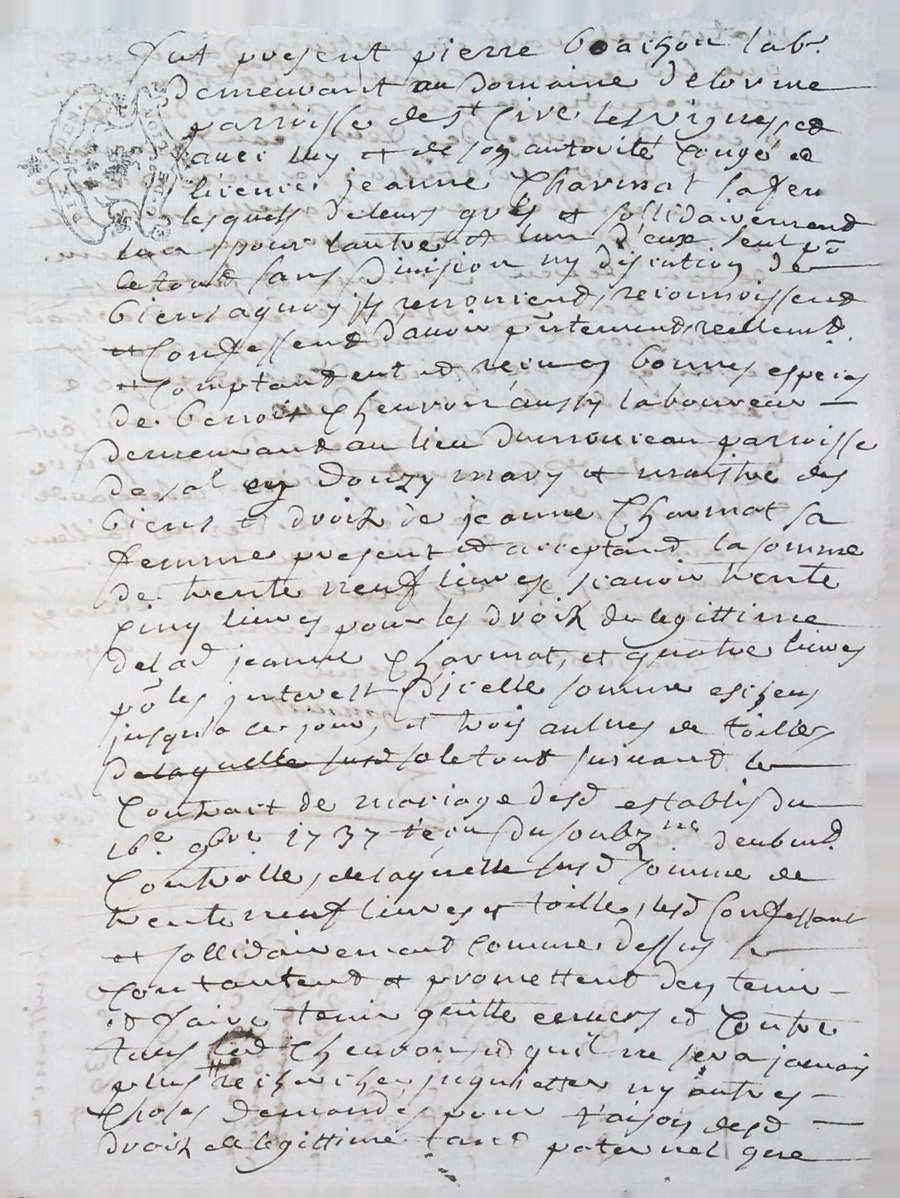 fut present pierre boachon labr
demeurant au domaine delorme
parroisse de st Cire les vignes et
avec luy et de son autorité congé et
licence jeanne Charmat sa fem
lesquels de leurs grés et sollidairement
lun pour lautre et lun d'eux seul pō
le tout sans division ny discution de
biens aquoy ils renoncent, reconnoissent
et Confessent d'avoir pntement reellemt
et Comptant eut et receus bonnes especes
de benoist Chevron aussy laboureur
demeurant au lieu dumonceau parroisse
de sal en Donzy mary et maitre des
biens et droits de jeanne Charmat sa
femme present et acceptand la somme
de trente neuf livres, scavoir trente
cinq livres pour les droits de legittime
de lad jeanne Charmat, et quatre livres
pō les jnterest d'icelle somme escheus
jusqu'a ce jour, et trois autnes de toilles
delaquelle susd so le tout suivant le
Contract de mariage desd establis du
16e 9bre 1737 reçu du soubz ne deubmt
Controlle, de laquelle susd somme de
trente neuf livres et toille, lesd Confessant
et sollidairement comme dessus se
contantent et promettent den tenir
et faire tenir quitte envers et Contre
tous led Chevron et quil ne sera jamais
plus recherché, jnquietter ny autres
choses demandés pour raison desd
droits de legittime tant paternel que